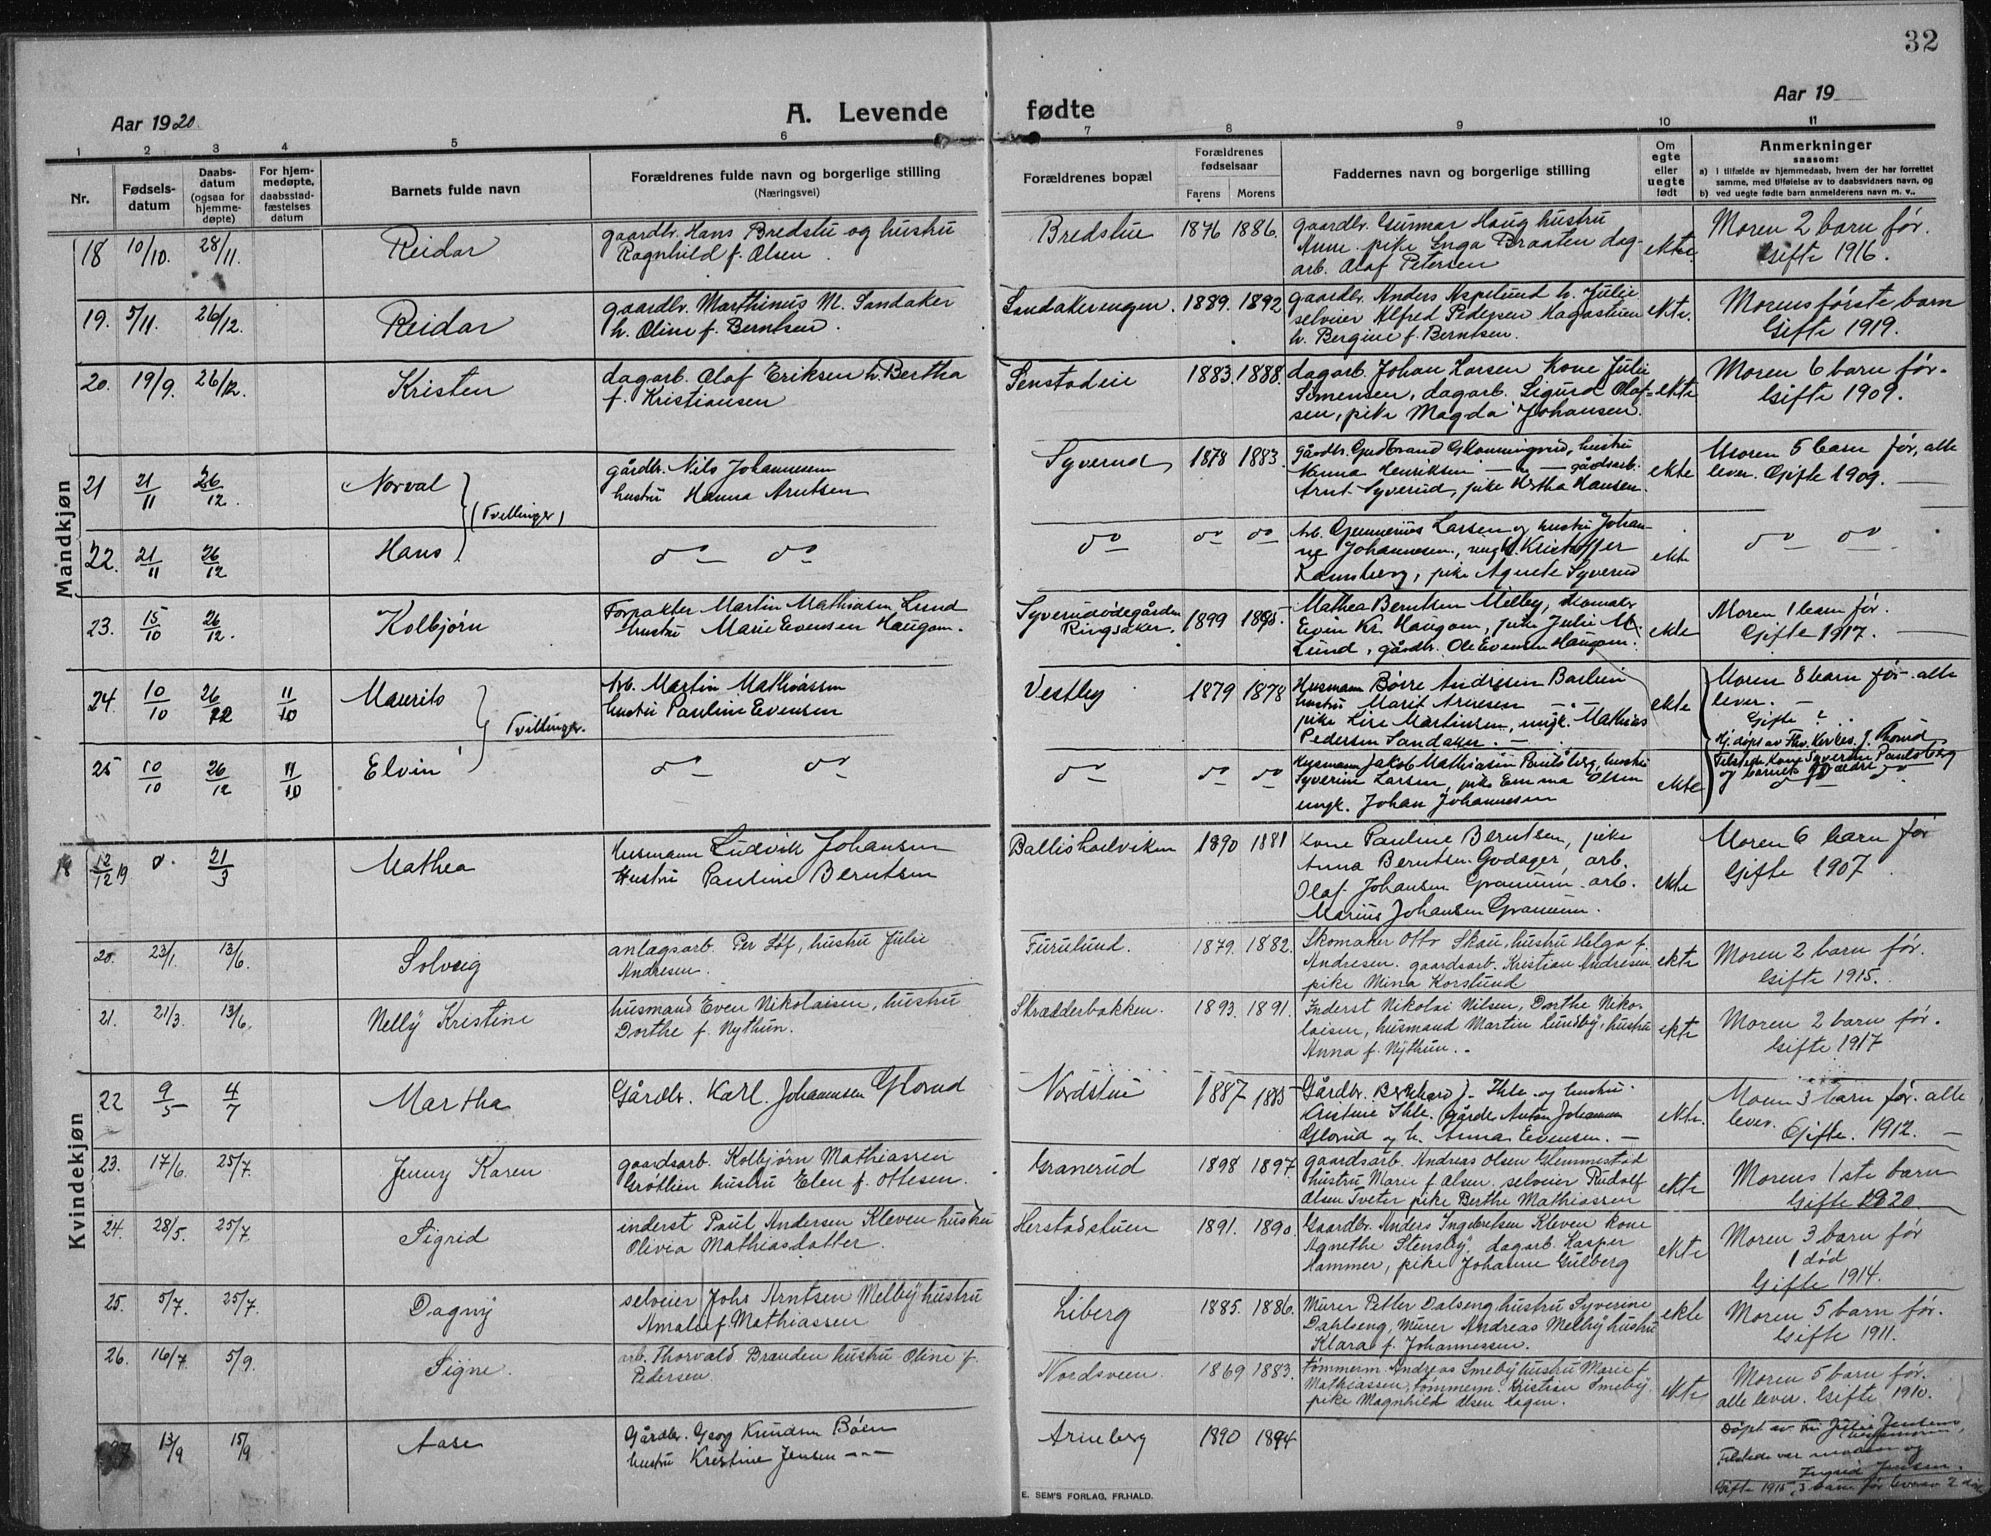 32
Aar 1920.
A. Levende fødte
Aar 19
1 2 3 4 5 6 7 8 9 10 11
Nr.
Fødsels-
datum
Daabs-
datum
(ogsaa for
hjemme-
døpte)
For hjem-
medøpte,
daabsstad-
fæstelses
datum
Barnets fulde navn
Forældrenes fulde navn og borgerlige stilling
(Næringsvei)
Forældrenes bopæl
Forældrenes
fødselsaar
Farens Morens
Faddernes navn og borgerlige stilling
Om
egte
eller
uegte
født
Anmerkninger
saasom:
a) i tilfælde av hjemmedaab, hvem der har forrettet
samme, med tilføielse av to daabsvidners navn, og
b) ved uegte fødte barn anmelderens navn m. v..
Mandkjøn
18 10/10. 28/11. Reidar
gaardbr. Hans Bredstu og hustru
Ragnhild f. Olsen.
Bredstue 1876 1886.
gaardbr. Gunnar Haug hustru
Anne. pike Inga Braaten dag-
arb. Olaf Petersen
ekte.
Moren 2 barn før.
Gifte 1916.
19. 5/11. 26/12. Reidar
gaardbr. Marthinus M. Sandaker
h. Oline f. Berntsen.
Sandakerengen. 1889. 1892
gaardbr. Anders Aspelund h. Julie
selveier Alfred Pedersen Hagastuen
h. Bergine f. Berntsen.
ekte.
Morens første barn
Gifte 1919.
20. 19/9. 26/12. Kristen
dagarb. Olaf Eriksen h. Bertha
f. Kristiansen
Senstadeie 1883. 1888.
dagarb. Johan Larsen Kone Julie
Simensen, dagarb. Sigurd Olaf-
sen, pike Magda Johansen.
ekte
Moren 6 barn før.
Gifte 1909.
21 21/11 26/12. Norval (Tvillinger)
gårdbr. Nils Johannesen
hustru Hanna Arntsen
Syverud 1878 1883.
Gårdbr. Gudbrand hustru
Henriksen gårdsarb.
Arnt Syverud, pike Hansen.
ekte
Moren 5 barn før, alle
lever. Gifte 1909.
22. 21/11 26/12 Hans
do do
do do do
Arb. Larsen og hustru Johan-
ne Johannesen, ungk. Kristoffer
pike Agnete Syverud
ekte
do do
23. 15/10 26/12. Kolbjørn
Forpakter Martin Mathiasen Lund
hustru Marie Evensen Haugom.
Syverudødegården
Ringsaker. 1899 1895.
Mathea Berntsen Melby,
Even Kr. Haugom, pike Julie M.
Lund, gårdbr. Ole Evensen Haugom.
ekte
Moren 1 barn før.
Gifte 1917.
24. 10/10 26/12 11/10 Maurits Tvillinger.
Arb. Martin Mathiassen
hustru Pauline Evensen
Vestby 1879 1878
Husmann Børre Andresen
hustru Marit
pike Martinsen, ungk. Mathias
Pedersen Sandaker.
ekte
Moren 8 barn før. alle
lever.
Gifte ?
25 10/10 26/12 11/10 Elvin
do do
do do do
Husmann Jakob Mathiasen hustru
Syverine Larsen, pike Emma Olsen
ungk. Johan Johannesen
ekte
Hj. døpt av
Tilstede Kone Syverine Paulsberg
og barnets forældre
18 12/12 19 21/3 Mathea
Husmann Ludvik Johansen
Hustru Pauline Berntsen
1890 1881
Kone Pauline Berntsen, pike
Anna Berntsen Godager, arb.
Olaf Johansen Granum. arb.
Marius Johansen Granum.
ekte
Moren 6 barn før
Gifte 1907.
Kvindekjøn
20. 23/1. 13/6. Solveig
anlægsarb. Per Løf, hustru Julie
Andresen.
Furulund. 1879. 1882.
Skomaker Otto Skau, hustru Helga f.
Andresen. gaardsarb. Kristian Andresen
pike Mina Korslund
ekte
Moren 2 barn før.
Gifte 1915.
21. 21/3. 13/6. Nelly Kristine
husmand Even Nikolaisen, hustru
Dorthe f. Nythun.
Skrædderbakken. 1893. 1891.
Inderst Nikolai Nilsen, Dorthe Niko-
laisen, husmand Martin Lundby, hustru
Anna f. Nythun.
ekte
Moren 2 barn før.
Gifte 1917
22 9/5 4/7 Martha
Gårdbr. Karl Johannesen Glorud
Nordstue 1887 1885
Gårdbr. Berthard J. Ihle og hustru
Kristine Ihle. Anton Johannesen
Glorud og h. Anna Evensen.
ekte.
Moren 3 barn før. alle
lever. Gifte. 1912.
23. 17/6. 25/7. Jenny Karen
gaardsarb. Kolbjørn Mathiassen
Grøtlien hustru Elen f. Ottesen.
Granerud 1898 1897.
gaardsarb. Andreas Olsen Glemmestad
hustru Marie f. Olsen. selveier Rudolf
Olsen Sveter pike Berthe Mathiassen
ekte
Morens 1ste barn
Gifte 1920.
24. 28/5. 25/7. Sigrid
inderst Paul Andersen Kleven hustru
Olivia Mathiasdatter.
Herstadstuen 1891. 1890.
Gaardbr. Anders Ingebretsen Kleven kone
Agnethe Stensby. dagarb. Kasper
Hammer, pike Johanne Gulberg
ekte
Moren 3 barn før
1 død
Gifte 1914.
25. 5/7. 25/7. Dagny
selveier Johs Arntsen Melby hustru
Amalie f. Mathiassen
Liberg 1885. 1886.
Murer Petter Dalseng hustru Syverine
Dahlseng, Murer Andreas Melby hustru
Klara f. Johannessen.
ekte
Moren 5 barn før.
Gifte 1911.
26. 16/7. 5/9. Signe.
arb. Thorvald Brænden hustru Oline f.
Pedersen.
Nordsveen. 1869 1883.
tømmerm. Andreas Smeby hustru Marie f.
Mathiassen, tømmerm. Kristian Smeby.
pike Magnhild Olsen Hagen.
ekte
Moren 5 barn før.
alle lever. Gifte 1910.
27 13/9 15/9 Aase
Gårdbr. Georg Knudsen Bøen
hustru Kristine Jensen
Arneberg 1890 1894
Døpt av Julie Jensen,
Tilstede var moren og
Ingrid Jensen.
Gifte 1915, 3 barn før 2
E. SEM'S FORLAG, FR.HALD.